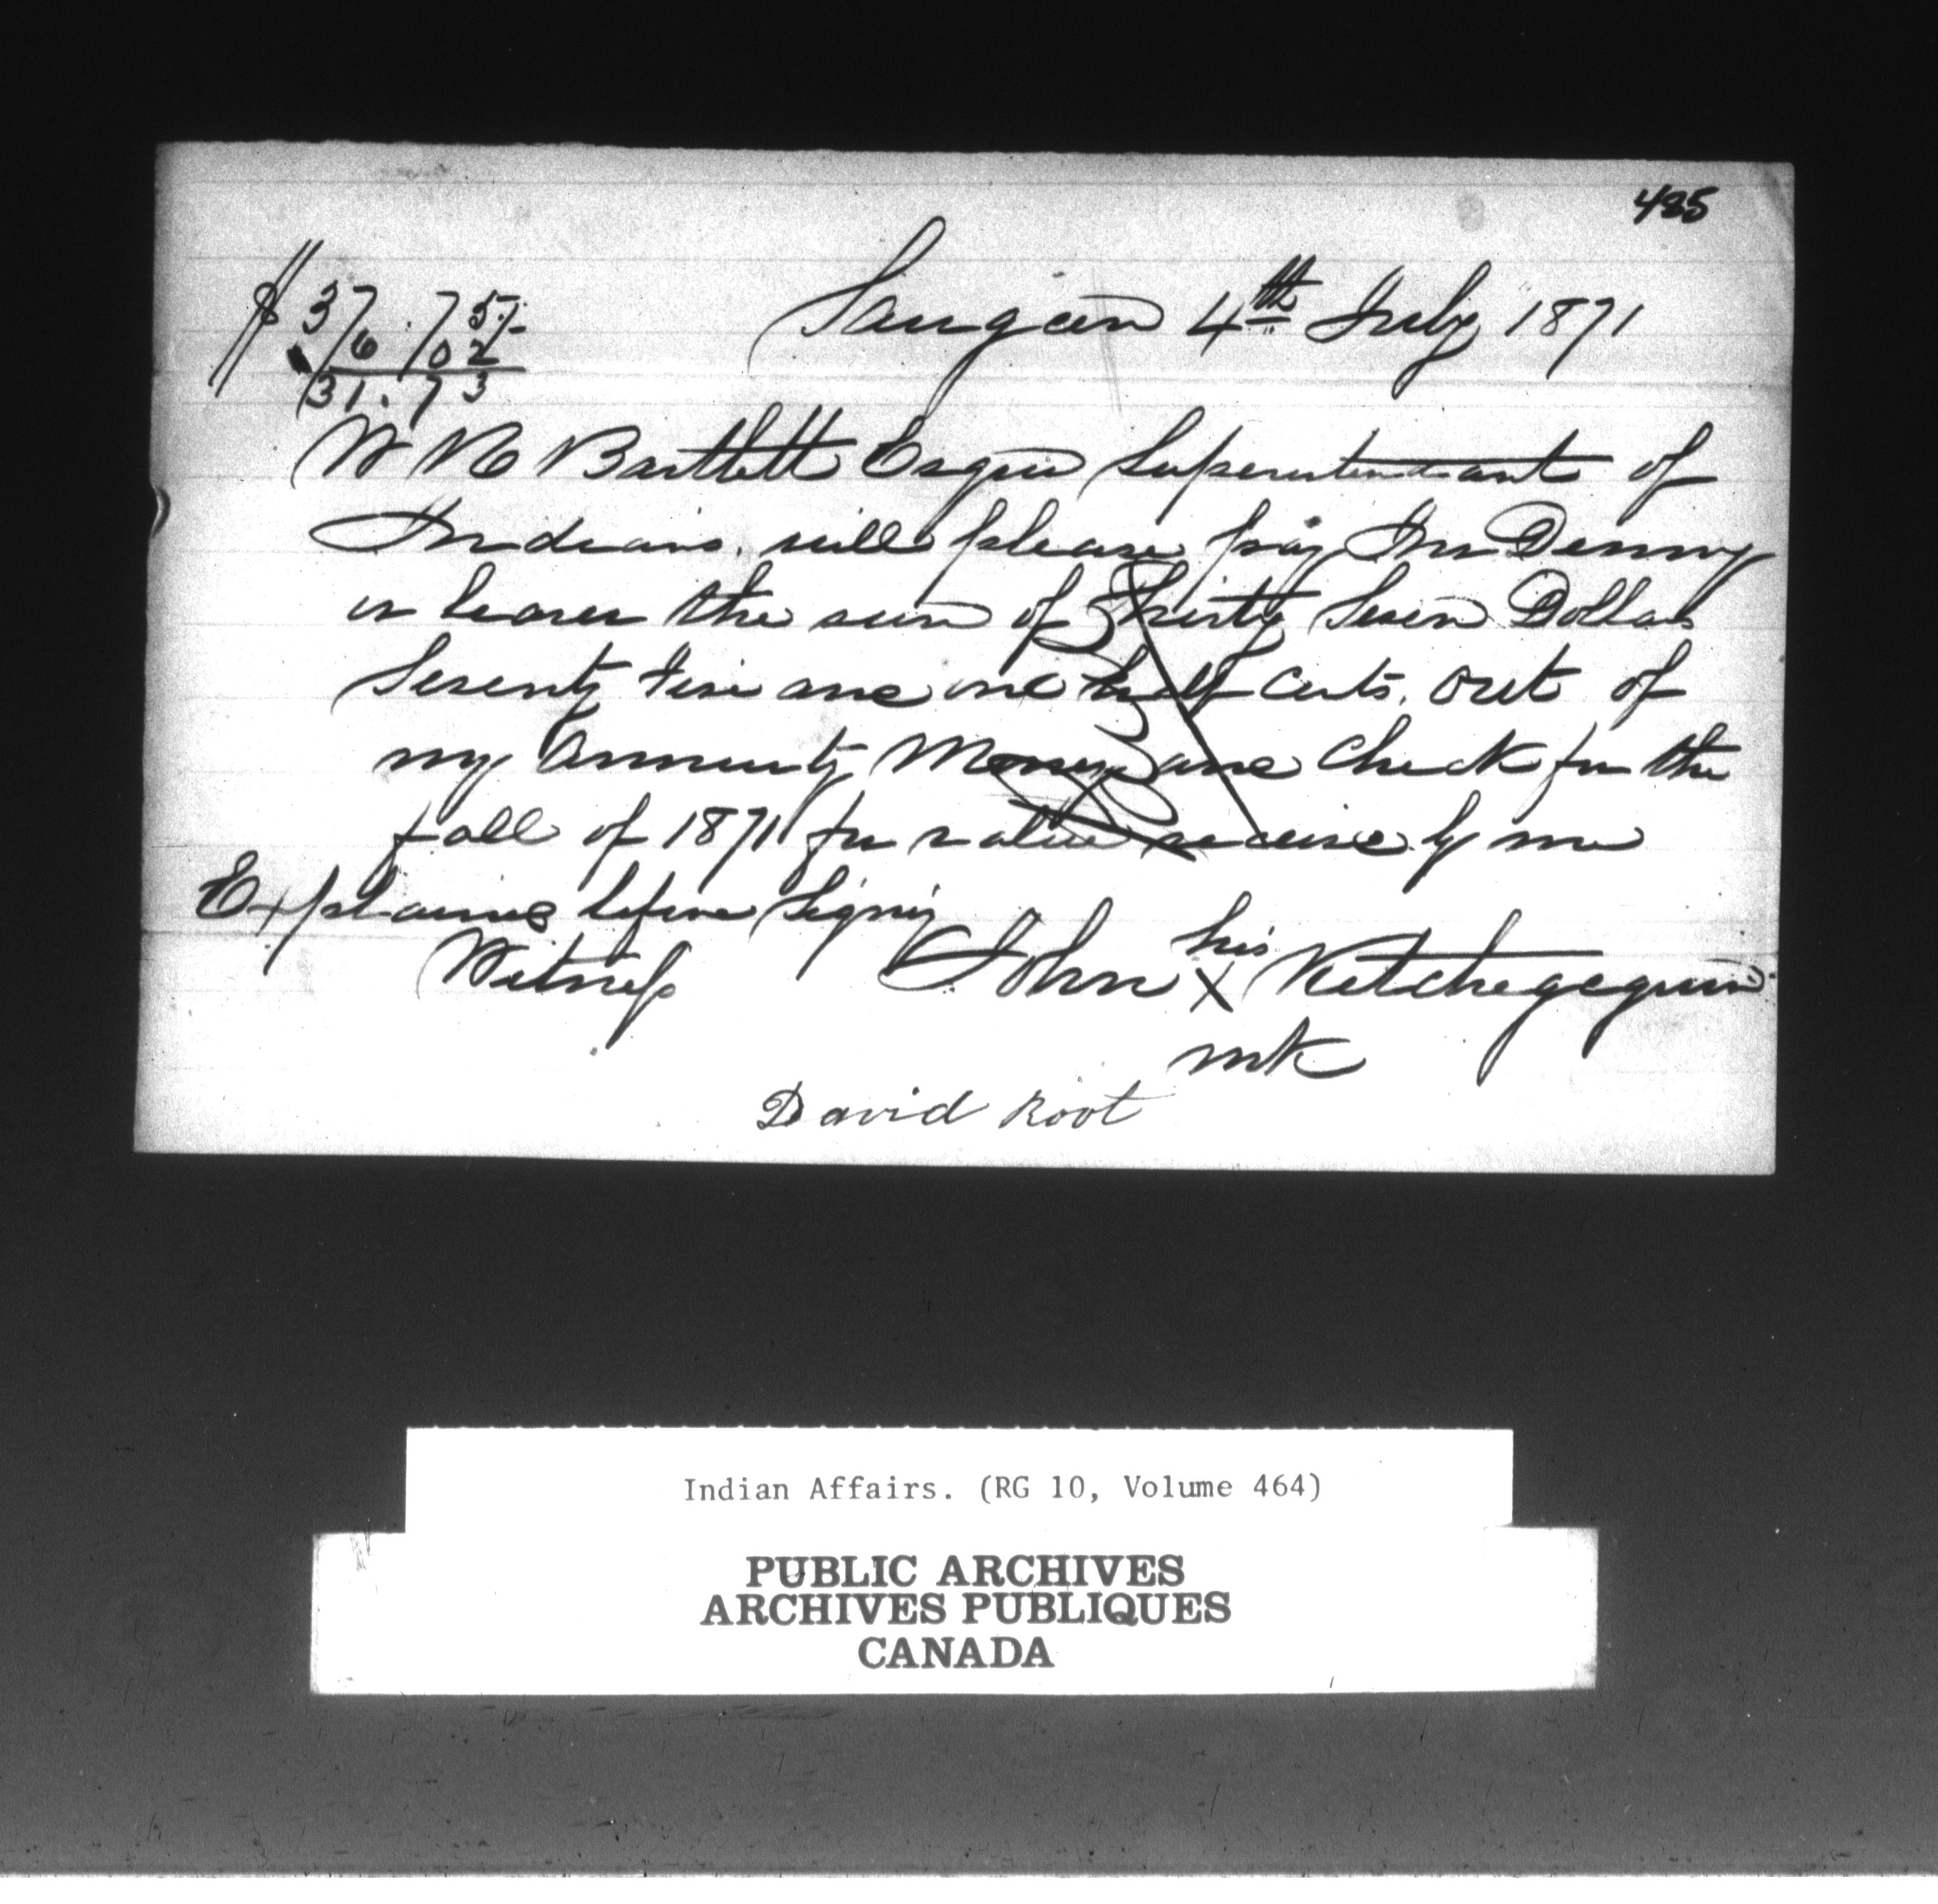 485
$ 37.75½
6.02
31.73
Saugeen 4th July 1871
W R Bartlett Esquire Superintendant of
Indians. will please pay Jno Denny
or bearer the sum of Thirty Seven Dollars
Seventy Five and one half cents. out of
my Annuity Money and Check for the
fall of 1871 for value received by me
Explained before signing
Witness John his X Ketchegegwin
mk
David Root
Indian Affairs. (RG 10, Volume 464)
PUBLIC ARCHIVES
ARCHIVES PUBLIQUES
CANADA